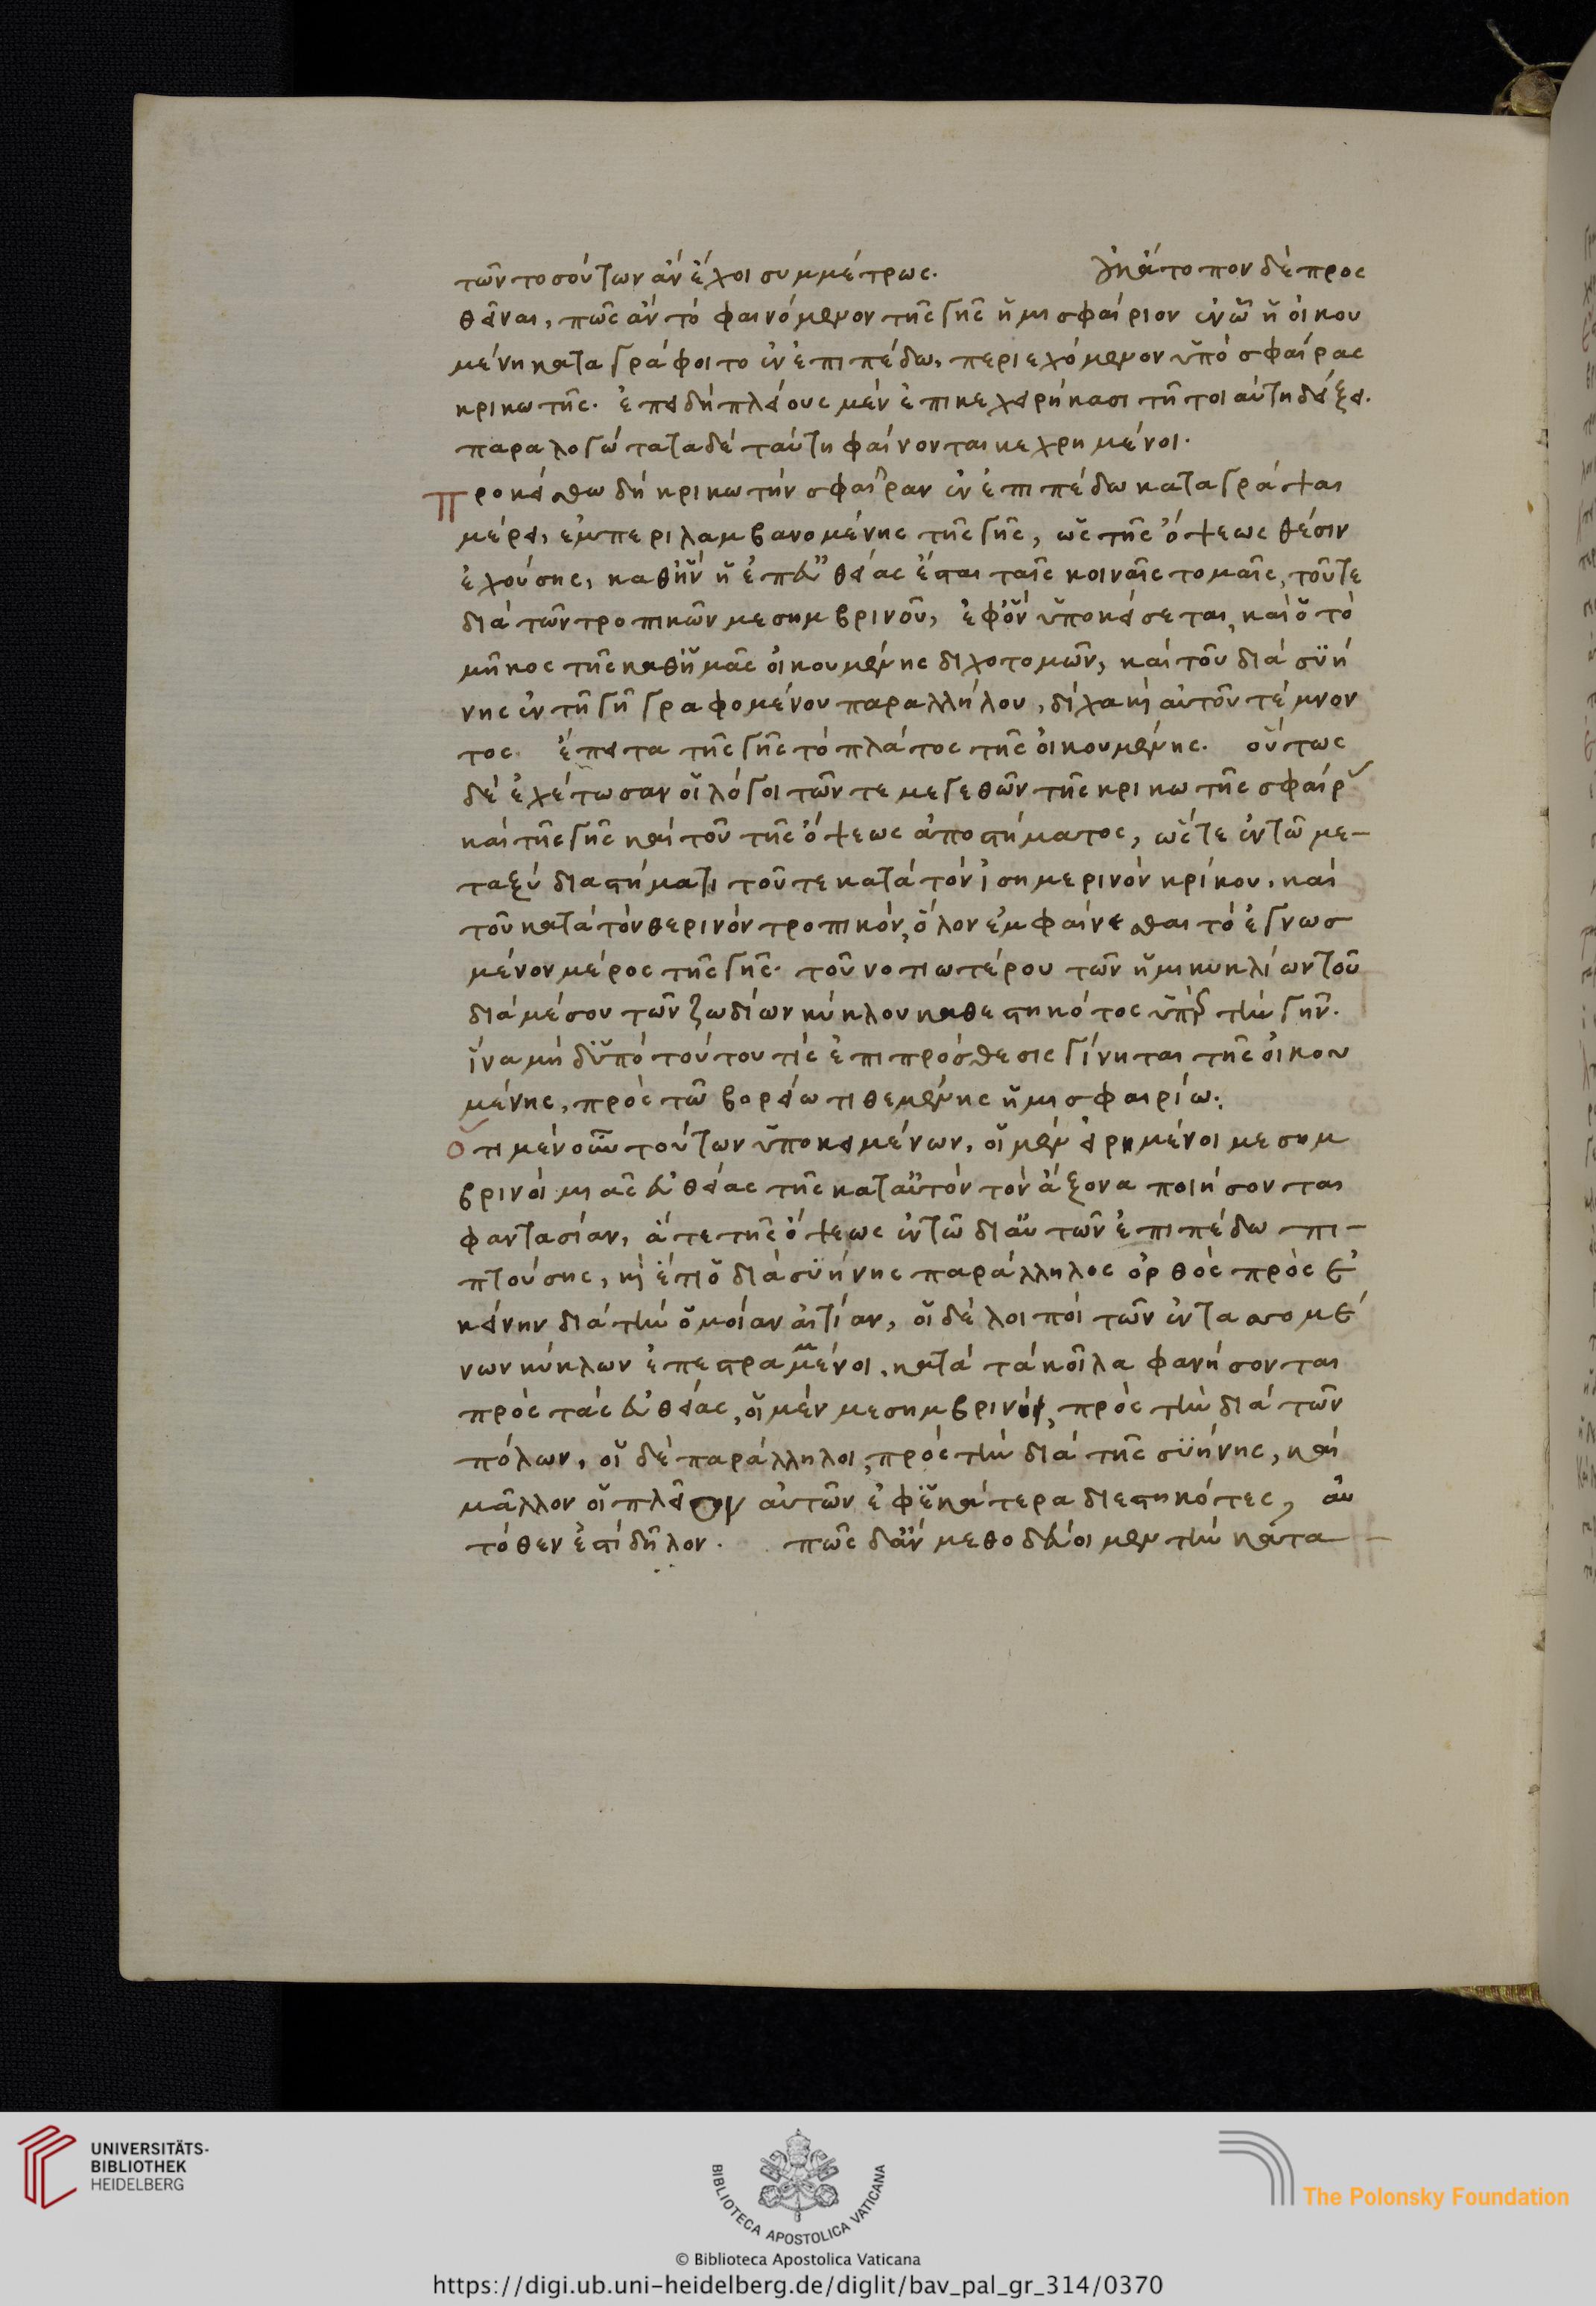 τῶν τοσούτων ἂν ἔχοι συμμέτρως. Οὐκ ἄτοπον δὲ προσ
θεῖναι, πῶς ἂν τὸ φαινόμενον τῆς γῆς ἡμισφαίριον ἐν ᾧ ἡ οἰκου
μένη καταγράφοιτο ἐν ἐπιπέδω, περιεχόμενον ὑπὸ σφαίρας
κρικωτῆς. ἐπειδὴ πλείους μὲν ἐπικεχειρήκασι τῇ τοιαύτη δείξει.
παραλογώτατα δὲ ταύτη φαίνονται κεχρημένοι.
Προκείσθω δὴ κρικωτὴν σφαῖραν ἐν ἐπιπέδω καταγράψαι
μέρει, ἐμπεριλαμβανομένης τῆς γῆς, ὡς τῆς ὄψεως θέσιν
ἐχούσης, καθ' ἣν ἡ ἐπ' εὐθείας ἔσται ταῖς κοιναῖς τομαῖς, τοῦ τε
διὰ τῶν τροπικῶν μεσημβρινοῦ, ἐφ' ὃν ὑποκείσεται, καὶ ὁ τὸ
μῆκος τῆς καθ' ἡμᾶς οἰκουμένης διχοτομῶν, καὶ τοῦ διὰ συή
νης ἐν τῇ γῇ γραφομένου παραλλήλου, δίχα καὶ αὐτοῦ τέμνον
τος. ἔπειτα τῆς γῆς τὸ πλάτος τῆς οἰκουμένης. οὕτως
δὲ ἐχέτωσαν οἱ λόγοι τῶν τε μεγεθῶν τῆς κρικωτῆς σφαίρας
καὶ τῆς γῆς καὶ τοῦ τῆς ὄψεως ἀποστήματος, ὥστε ἐν τῷ με-
ταξὺ διαστήματι τοῦ τε κατὰ τὸν ἰσημερινὸν κρίκου, καὶ
τοῦ κατὰ τὸν θερινὸν τροπικόν, ὅλον ἐμφαίνεσθαι τὸ ἐγνωσ
μένον μέρος τῆς γῆς. τοῦ νοτιωτέρου τῶν ἡμικυκλίων τοῦ
διὰ μέσου τῶν ζωδίων κύκλου καθεστηκότος ὑπὲρ τὴν γῆν.
ἵνα μὴ δ' ὑπὸ τούτου τίς ἐπιπρόσθεσις γίνηται τῆς οἰκου
μένης, πρὸς τῷ βορείω τιθεμένης ἡμισφαιρίω.
Ὅτι μὲν οὖν τούτων ὑποκειμένων, οἱ μὲν εἰρημένοι μεσημ
βρινοὶ μιᾶς εὐθείας τῆς κατ' αὐτὸν τὸν ἄξονα ποιήσονται
φαντασίαν, ἅτε τῆς ὄψεως ἐν τῷ δι' αὐτῶν ἐπιπέδω πι-
πτούσης, καὶ ἔτι ὁ διὰ συήνης παράλληλος ὀρθὸς πρὸς ἐ
κείνην διὰ τὴν ὁμοίαν αἰτίαν, οἱ δὲ λοιποὶ τῶν ἐντασσομέ
νων κύκλων ἐπεστραμμένοι, κατὰ τὰ κοῖλα φανήσονται
πρὸς τὰς εὐθείας, οἱ μὲν μεσημβρινοὶ, πρὸς τὴν διὰ τῶν
πόλων, οἱ δὲ παράλληλοι, πρὸς τὴν διὰ τῆς συήνης, καὶ
μᾶλλον οἱ πλεῖον αὐτῶν ἐφ' ἑκάτερα διεστηκότες, αὐ
τόθεν ἐστὶ δῆλον. πῶς δ' ἂν μεθοδεύοιμεν τὴν κατα-
UNIVERSITÄTS-
BIBLIOTHEK
HEIDELBERG
BIBLIOTECA APOSTOLICA VATICANA
The Polonsky Foundation
© Biblioteca Apostolica Vaticana
https://digi.ub.uni-heidelberg.de/diglit/bav_pal_gr_314/0370